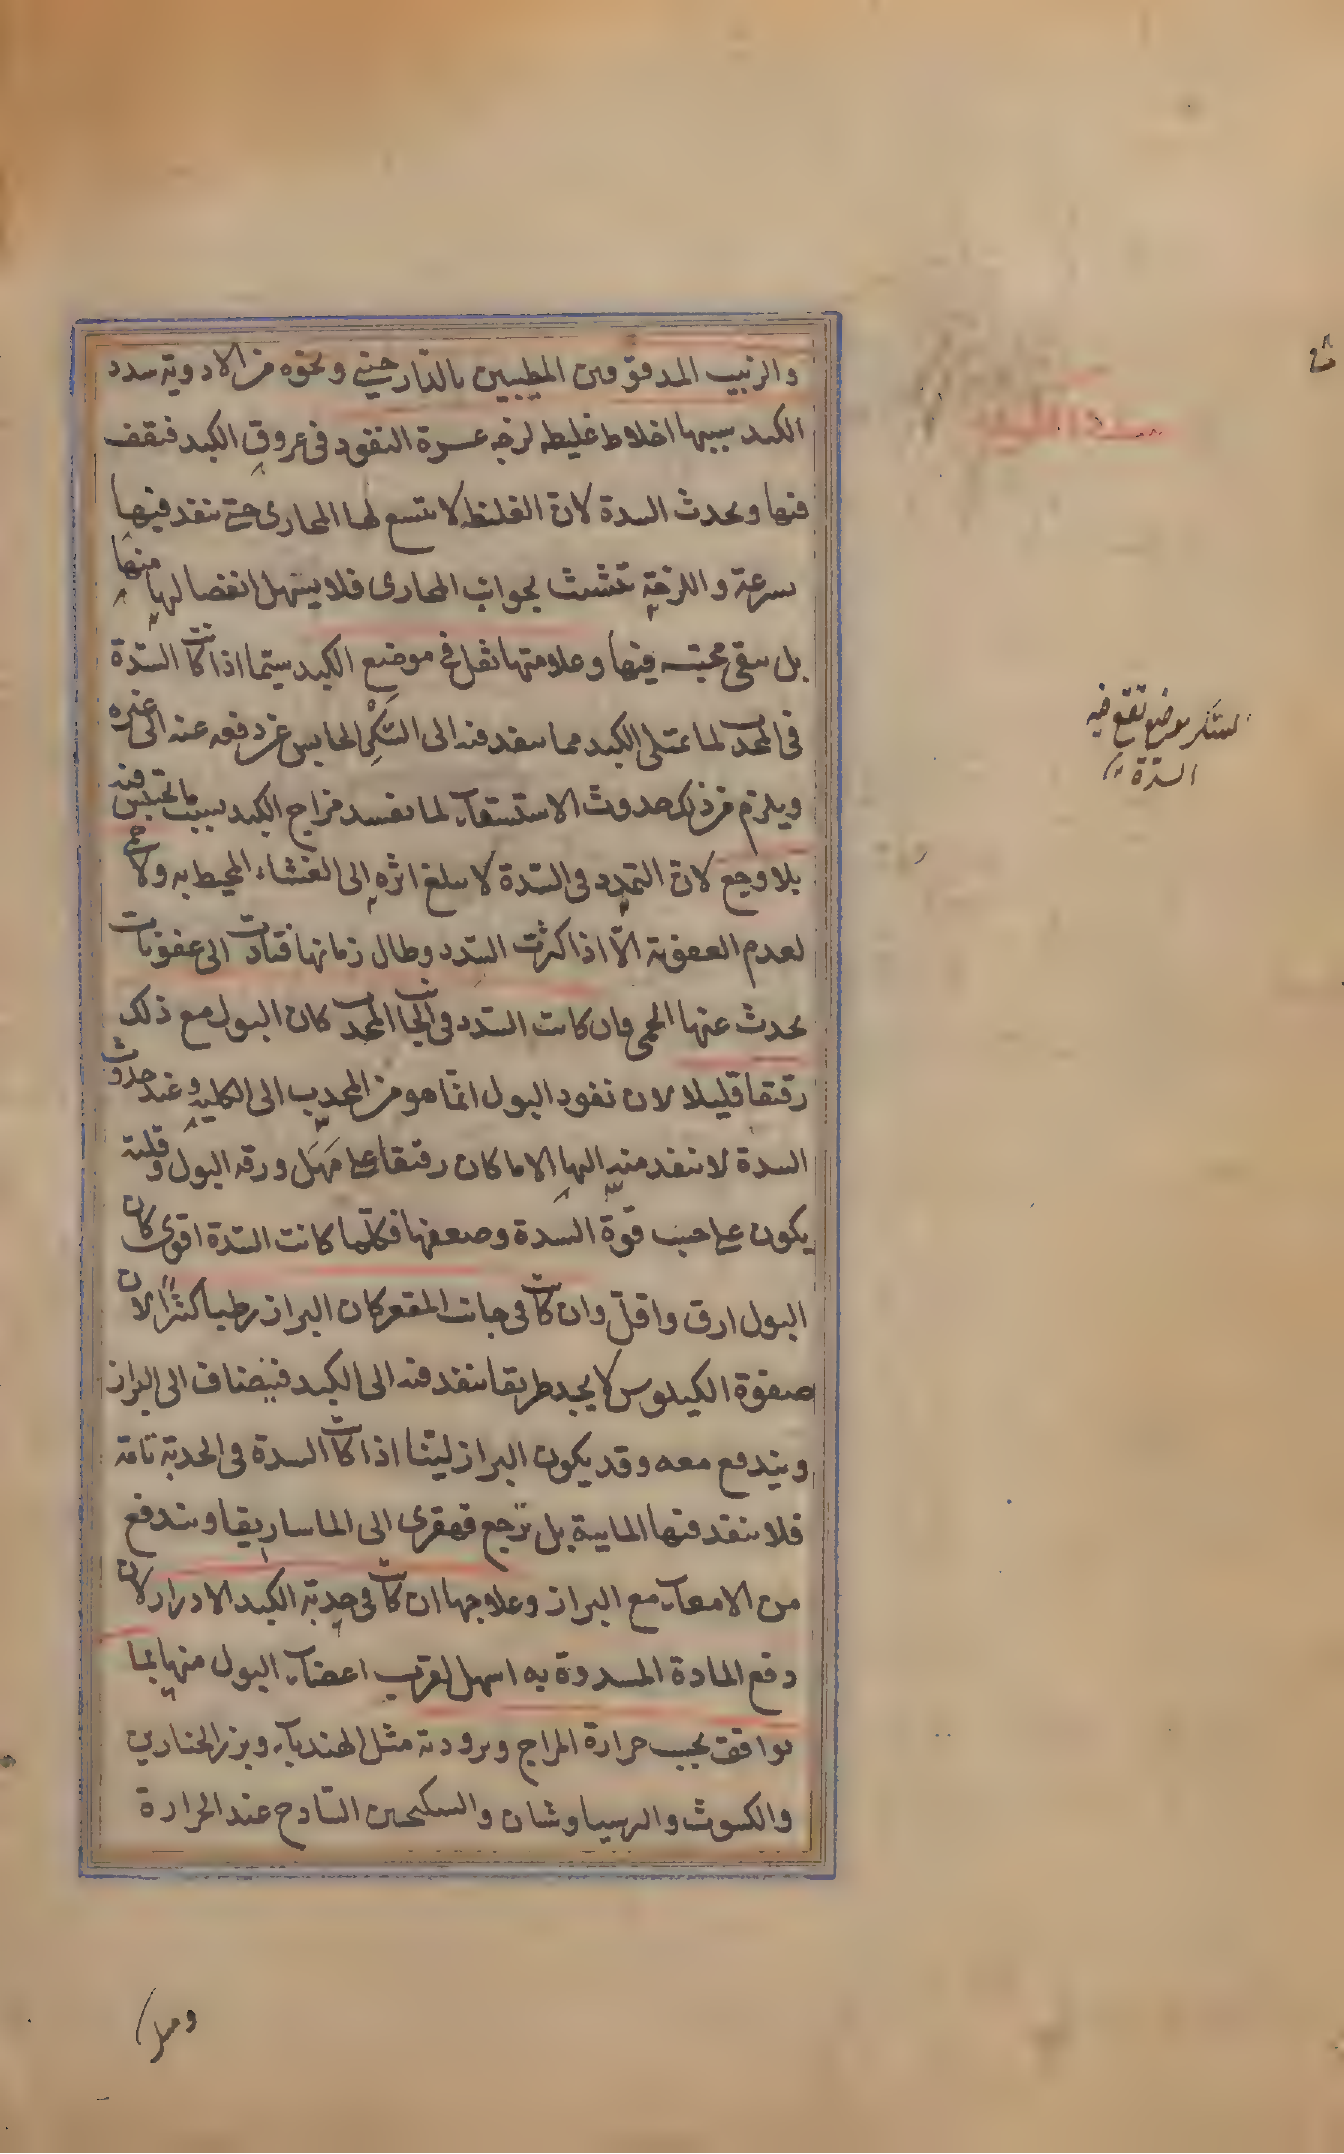 والزبيب المدقوقين المطيبين بالدارجيني ونحوه من الادوية سدد
الكبد سببها اخلاط غليظه لزجه عسرة النفوذ في عروق الكبد فتقف
فيها ويحدث السدة لان الغليظ لا تتسع لها المجاري حتى تنفذ فيها
بسرعة واللزجة تتشبث بجوانب المجاري فلا يسهل انفصالها منها
بل تبقى محتبسه فيها وعلامتها ثقل في موضع الكبد سيما اذا كانت السدة
في المحدب لما يمتلى الكبد مما ينفذ فيه الى السكر الحابس عن دفعه عنه الى غيره
ويلزم من ذلك حدوث الاستسقاء لما يفسد مزاج الكبد بسبب ما يحتبس فيه
بلا وجع لان التمدد في السدة لا يبلغ اثره الى الغشاء المحيط به ولا حمى
لعدم العفونة الا اذا كثرت السدد وطال زمانها فتادت الى عفونات
يحدث عنها الحمى وان كانت السدد في الجانب المحدب كان البول مع ذلك
رقيقا قليلا لان نفوذ البول انما هو من المحدب الى الكلية وعند حدوث
السدة لا ينفذ منه اليها الا ما كان رقيقا على مهل ورقه البول وقلته
يكون على حسب قوة السدة وضعفها فكلما كانت السدة اقوى كان
البول ارق واقل وان كانت في جانب المقعر كان البراز رطبا كثيرا لان
صفوة الكيلوس لا يجد طريقا ينفذ فيه الى الكبد فينضاف الى البراز
ويندفع معه وقد يكون البراز لينا اذا كانت السدة في الحدبة تامة
فلا ينفذ فيها المايية بل ترجع قهقرى الى الماساريقا ويندفع
من الامعاء مع البراز وعلاجها ان كانت في حدبة الكبد الادرار لان
دفع المادة المسدودة به اسهل لقرب اعضاء البول منها بما
يوافق بحسب حرارة المزاج وبرودته مثل الهندباء وبزر الخيارين
والكشوث والبرسياوشان والسكنجبين الساذج عند الحرارة
سدد الكبد
السكر موضع تقع فيه
السدة